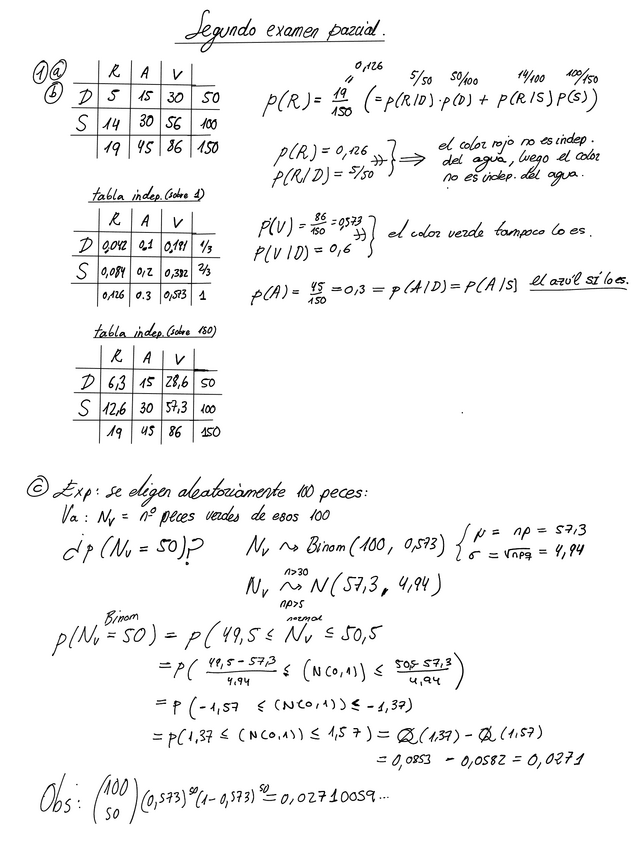 Segundo examen parcial.
1 a
b
R A V
D 5 15 30 50
S 14 30 56 100
19 45 86 150
0,126
"
5/50 50/100 14/100 100/150
p(R) = 19/150 (= p(R/D) · p(D) + p(R/S) p(S))
p(R) = 0,126
p(R/D) = 5/50
⇒ el color rojo no es indep.
del agua, luego el color
no es indep. del agua.
tabla indep. (sobre 1)
R A V
D 0,042 0,1 0,191 1/3
S 0,084 0,2 0,382 2/3
0,126 0.3 0,573 1
p(V) = 86/150 = 0,573
p(V/D) = 0,6
el color verde tampoco lo es.
p(A) = 45/150 = 0,3 = p(A/D) = p(A/S) el azul sí lo es.
tabla indep. (sobre 150)
R A V
D 6,3 15 28,6 50
S 12,6 30 57,3 100
19 45 86 150
c Exp: se eligen aleatoriamente 100 peces:
Va: Nv = nº peces verdes de esos 100
¿p(Nv = 50)? Nv ~> Binom(100, 0,573) { μ = np = 57,3
σ = √npq = 4,94
n>30
Nv ~> N(57,3, 4,94)
np>5
Binom normal
p(Nv = 50) = p(49,5 ≤ Nv ≤ 50,5
= p( 49,5 - 57,3 / 4,94 ≤ (N(0,1)) ≤ 50,5 - 57,3 / 4,94 )
= p(-1,57 ≤ (N(0,1)) ≤ -1,37)
= p(1,37 ≤ (N(0,1)) ≤ 1,57) = Q(1,37) - Q(1,57)
= 0,0853 - 0,0582 = 0,0271
Obs: (100 50) (0,573)^50 (1-0,573)^50 = 0,02710059...